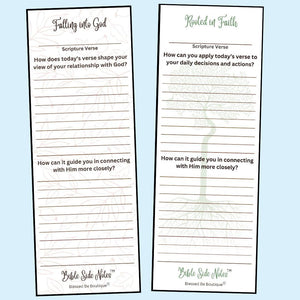 Falling into God
Scripture Verse
How does today's verse shape your
view of your relationship with God?
How can it guide you in connecting
with Him more closely?
Bible Side Notes™
Blessed Be Boutique®
Rooted in Faith
Scripture Verse
How can you apply today's verse to
your daily decisions and actions?
How can it guide you in connecting
with Him more closely?
Bible Side Notes™
Blessed Be Boutique®